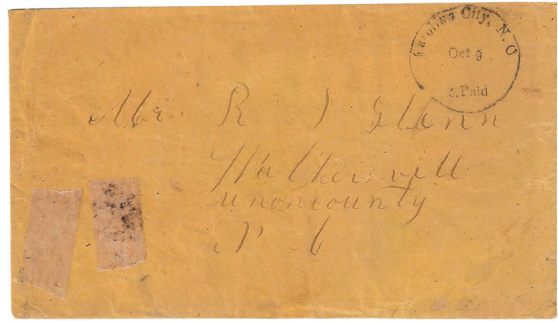 Carolina City, N. C
Oct 9
5.Paid
Mr. R J Glenn
Walkersvill
unoncounty
N C